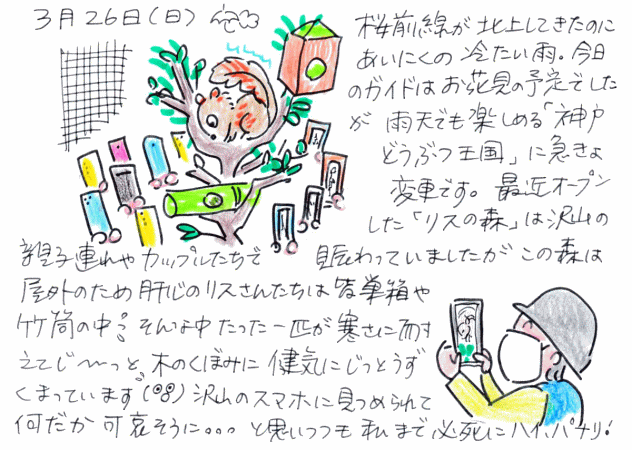 3月26日(日)
桜前線が北上してきたのに
あいにくの冷たい雨。今日
のガイドはお花見の予定でした
が雨天でも楽しめる「神戸
どうぶつ王国」に急きょ
変更です。最近オープン
した「リスの森」は沢山の
親子連れやカップルたちで賑わっていましたがこの森は
屋外のため肝心のリスさんたちは皆巣箱や
竹筒の中。そんな中たった一匹が寒さに耐
えてじ〜っと、木のくぼみに健気にじっとうず
くまっています 沢山のスマホに見つめられて
何だか可哀そうに。。。と思いつつも私まで必死にハイ、パチリ!